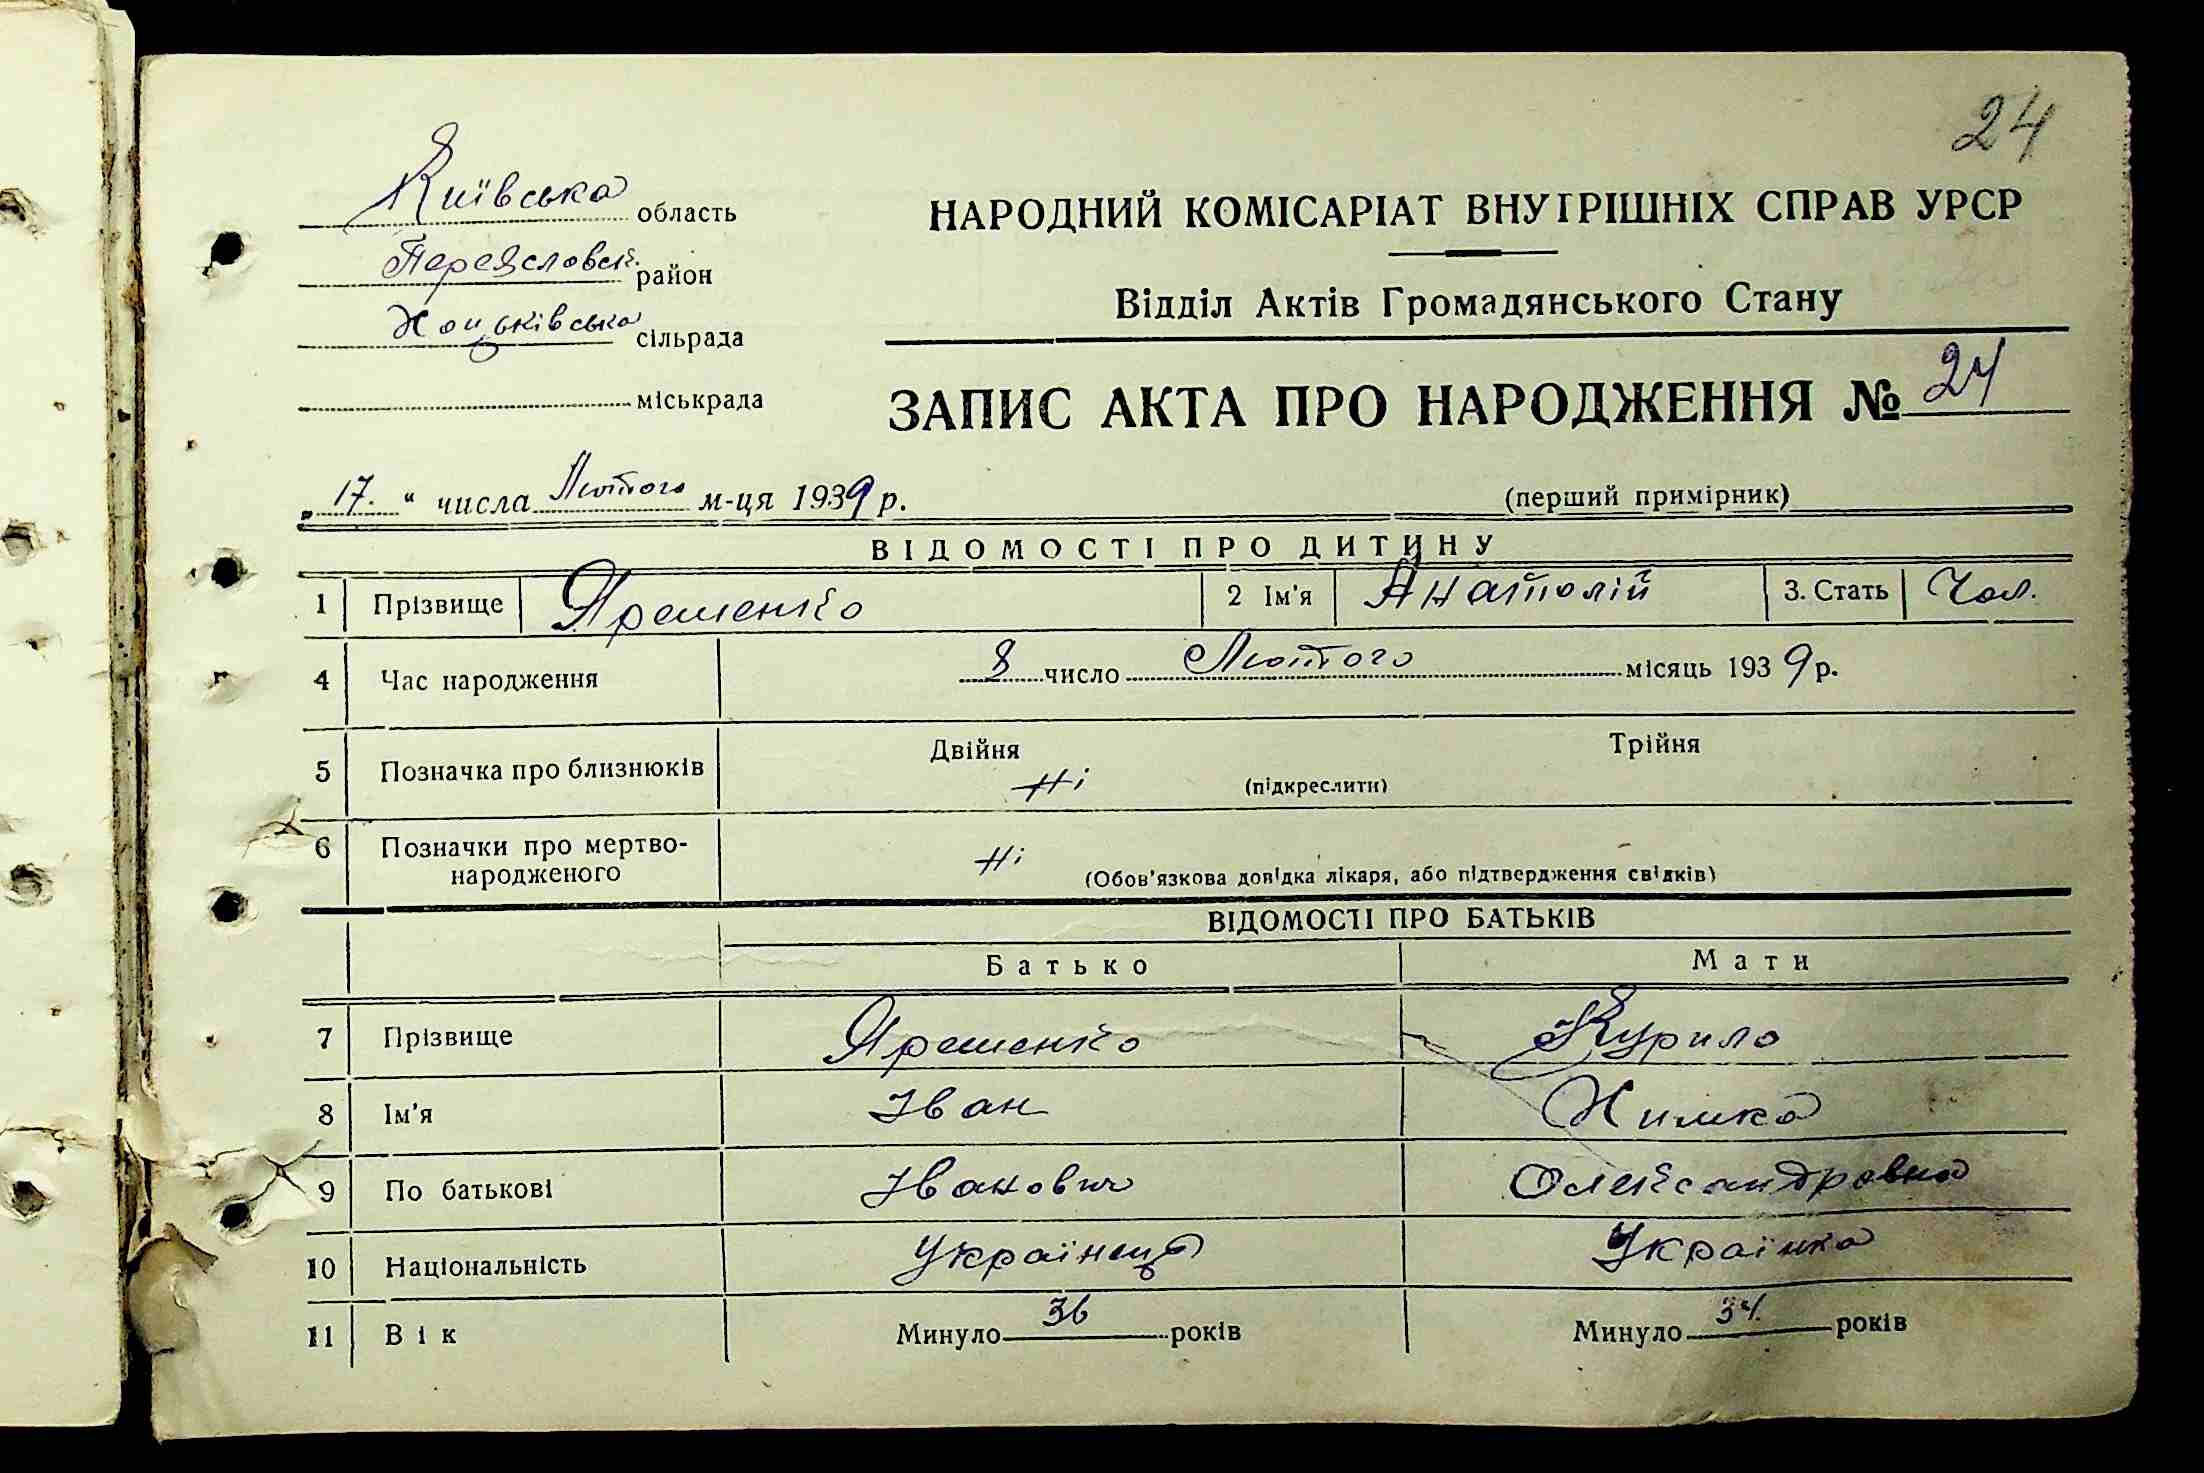 24
Київська область
НАРОДНИЙ КОМІСАРІАТ ВНУТРІШНІХ СПРАВ УРСР
Переясловськ. район
Відділ Актів Громадянського Стану
Хоцьківська сільрада
міськрада
ЗАПИС АКТА ПРО НАРОДЖЕННЯ № 24
„17.“ числа Лютого м-ця 1939 р.
(перший примірник)
ВІДОМОСТІ ПРО ДИТИНУ
1 Прізвище Ярешенко 2 Ім'я Анатолій 3. Стать Чол.
4 Час народження 8 число Лютого місяць 1939 р.
Двійня Трійня
5 Позначка про близнюків Ні (підкреслити)
6 Позначки про мертво-
народженого Ні (Обов'язкова довідка лікаря, або підтвердження свідків)
ВІДОМОСТІ ПРО БАТЬКІВ
Батько Мати
7 Прізвище Ярешенко Курило
8 Ім'я Іван Химка
9 По батькові Іванович Олександровна
10 Національність Українець Українка
11 Вік Минуло 36 років Минуло 34 років